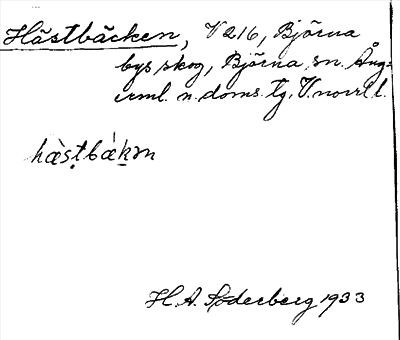 Hästbäcken, V 216, Björna
bys skog, Björna sn. Ång-
erml. n. doms. tg. V.norrl. l.
hæ̀sṭbæ̀ḵən
H. A. Söderberg 1933